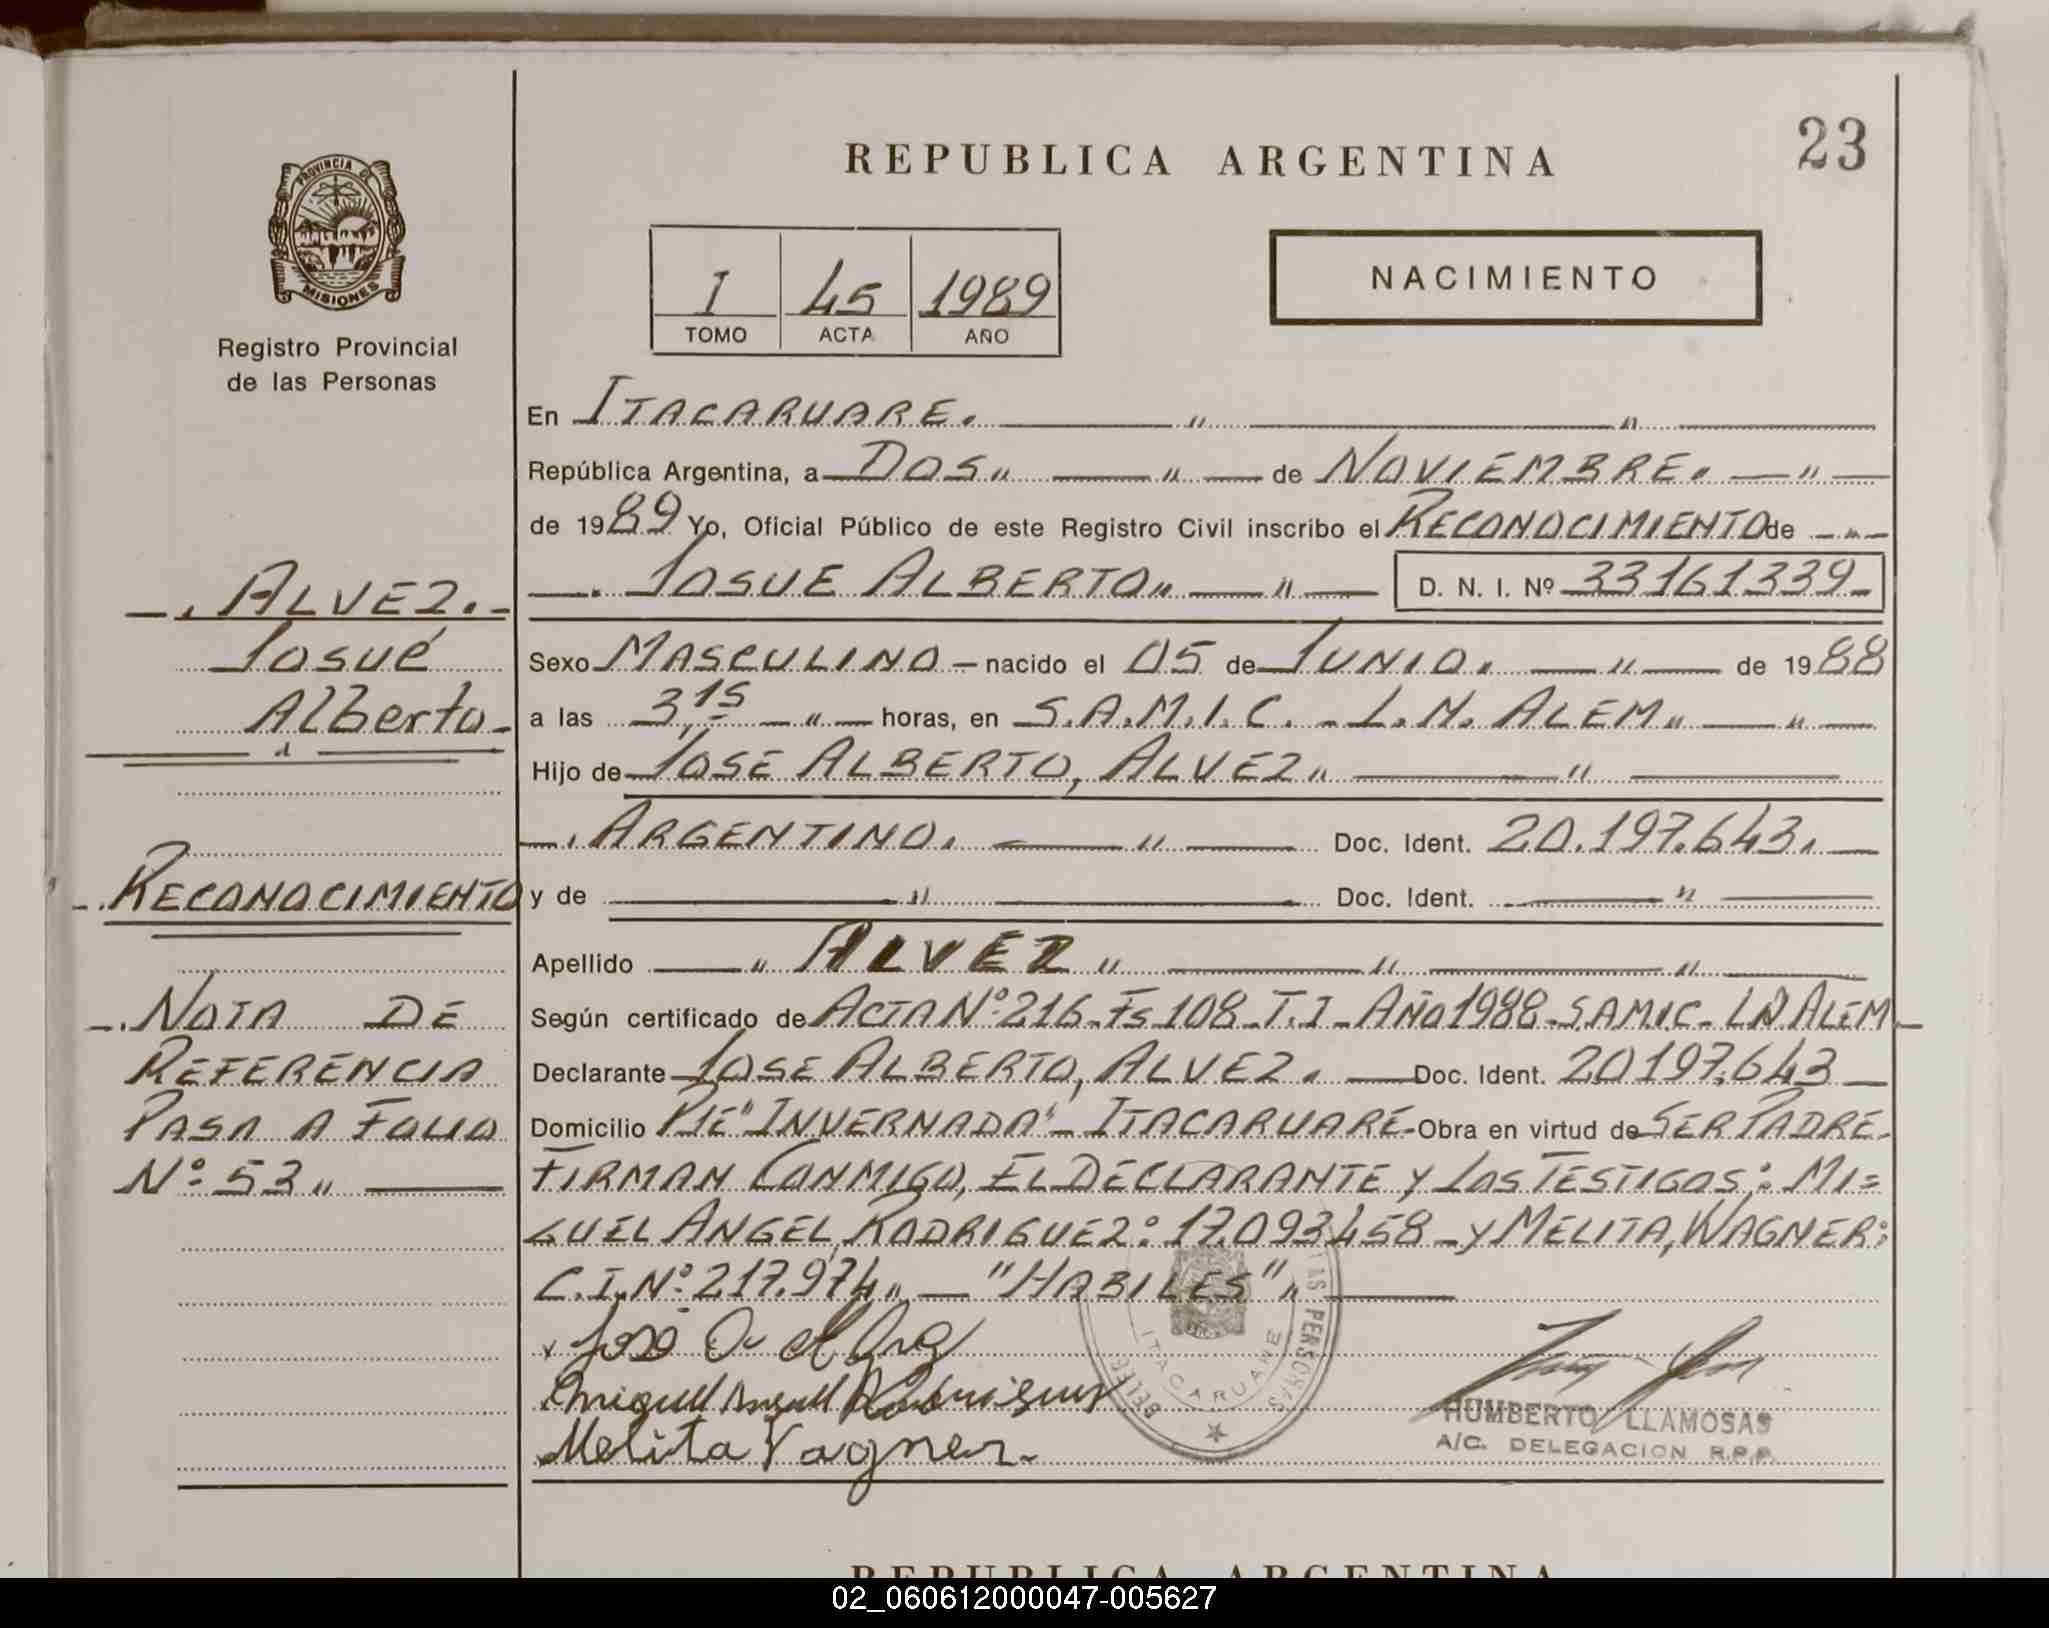 23
REPUBLICA ARGENTINA
PROVINCIA DE
MISIONES
Registro Provincial
de las Personas
I 45 1989
TOMO ACTA AÑO
NACIMIENTO
En ITACARUARE.
República Argentina, a DOS de NOVIEMBRE.
de 1989 Yo, Oficial Público de este Registro Civil inscribo el RECONOCIMIENTO de
JOSUE ALBERTO D. N. I. Nº 33161339
ALVEZ.
Josué
Alberto
Sexo MASCULINO nacido el 05 de JUNIO. de 1988
a las 3,15 horas, en S.A.M.I.C. - L.N. ALEM
Hijo de JOSE ALBERTO, ALVEZ
ARGENTINO. Doc. Ident. 20.197.643.
y de Doc. Ident.
RECONOCIMIENTO
Apellido ALVEZ
Según certificado de ACTA Nº 216 - Fs 108 - T.I - AÑO 1988 - S.A.M.I.C - LN ALEM
Declarante JOSE ALBERTO, ALVEZ. Doc. Ident. 20197.643
Domicilio PJE "INVERNADA" - ITACARUARE - Obra en virtud de SER PADRE -
FIRMAN CONMIGO, EL DECLARANTE Y LOS TESTIGOS: MI=
GUEL ANGEL, RODRIGUEZ: 17.093.458 - Y MELITA, WAGNER:
C.I. Nº 217.974 "HABILES"
NOTA DE
REFERENCIA
PASA A FOLIO
Nº 53
Miguel Angel Rodriguez
Melita Vagner
ITACARUARE
PERSONAS
HUMBERTO LLAMOSAS
A/C. DELEGACION R.P.P.
REPUBLICA ARGENTINA
02_060612000047-005627